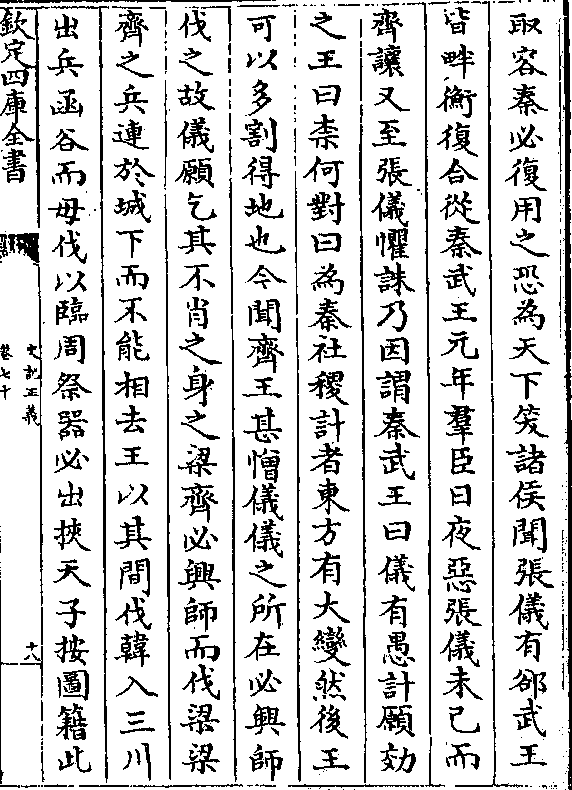 取容秦必復用之恐為天下笑諸侯聞張儀有郤武王
皆畔衡復合從秦武王元年羣臣日夜惡張儀未已而
齊讓又至張儀懼誅乃因謂秦武王曰儀有愚計願効
之王曰柰何對曰為秦社稷計者東方有大變然後王
可以多割得地也今聞齊王甚憎儀儀之所在必興師
伐之故儀願乞其不肖之身之梁齊必興師而伐梁梁
齊之兵連於城下而不能相去王以其間伐韓入三川
出兵函谷而毋伐以臨周祭器必出挾天子按圖籍此
欽定四庫全書
史記正義
卷七十
十八